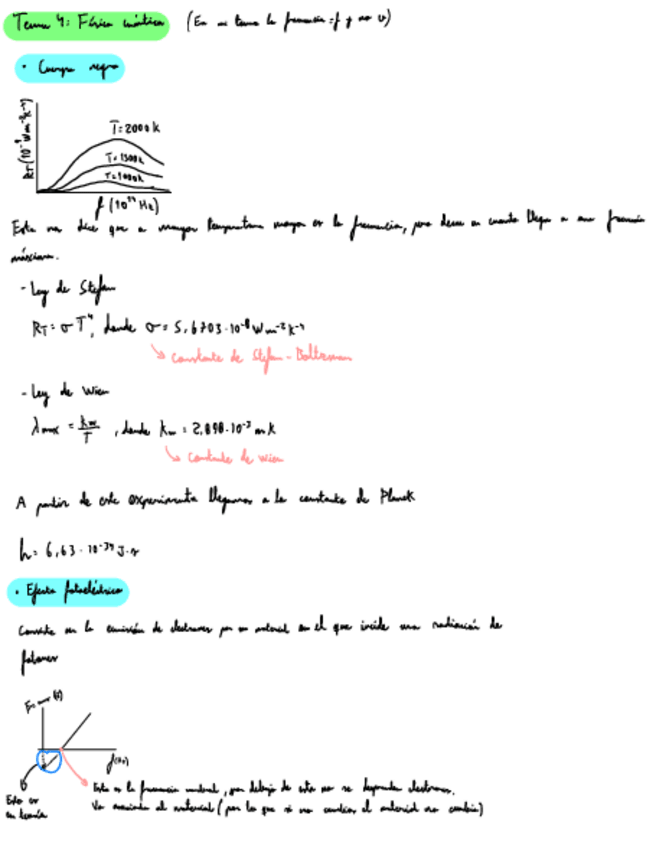 Tema 4: Física cuántica (En mi tema la frecuencia = f y no ν)
· Cuerpo negro
RT (10⁻⁹ Wm⁻²K⁻⁴)
T=2000k
T=1500k
T=1000k
f (10¹⁴ Hz)
Esto nos dice que a mayor temperatura mayor es la frecuencia, pero decae en cuanto llega a una frecuencia
máxima.
- Ley de Stefan
RT = σ T⁴, donde σ = 5,6703·10⁻⁸ Wm⁻²k⁻⁴
Constante de Stefan-Boltzman
- Ley de Wien
λmax = kw/T , donde kw = 2,898·10⁻³ mk
Constante de Wien
A partir de este experimento llegamos a la constante de Planck
h = 6,63·10⁻³⁴ J·s
· Efecto fotoeléctrico
Consiste en la emisión de electrones por un material en el que incide una radiación de
fotones
f(Hz)
Esto es
en teoría
Esta es la frecuencia umbral, por debajo de esta no se desprenden electrones.
Va asociada al material (por lo que si no cambia el material no cambia)